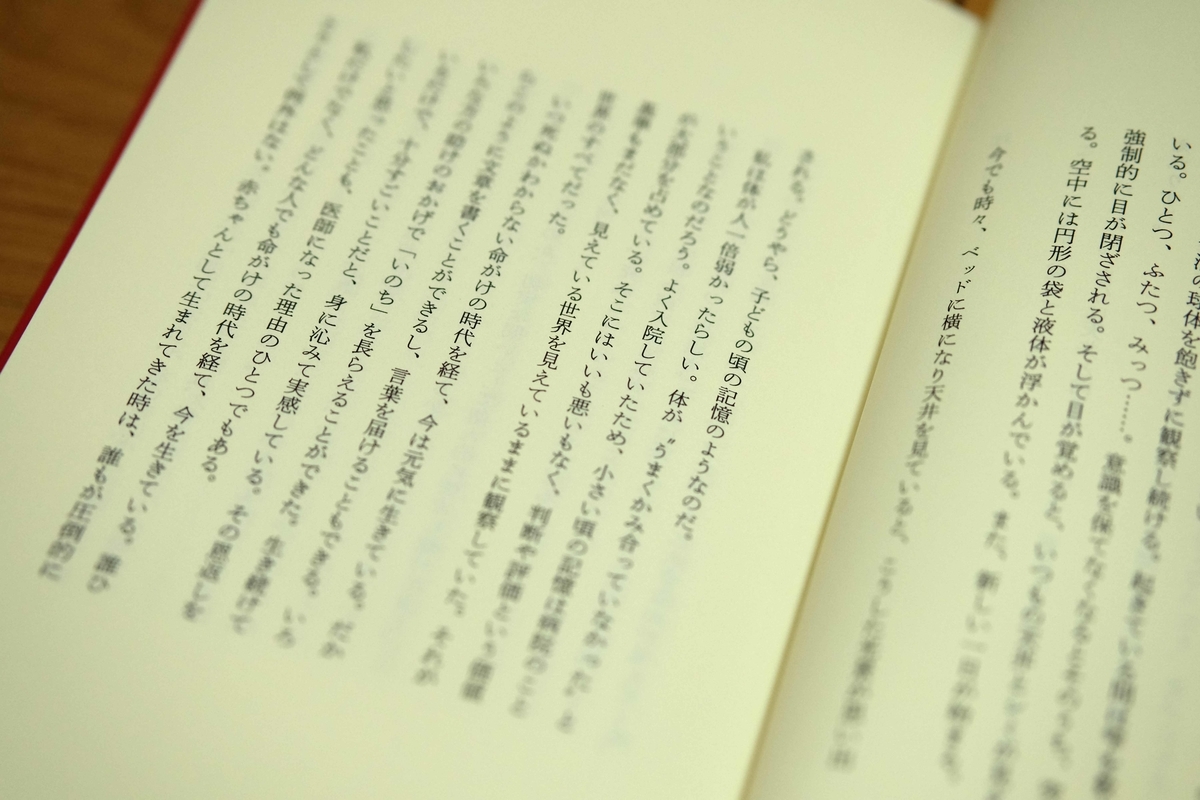 の球体を飽きずに観察し続ける。起きている間は
いる。ひとつ、ふたつ、みっつ……。意識を保てなくなるとそのうち、
強制的に目が閉ざされる。そして目が覚めると、いつもの天井
る。空中には円形の袋と液体が浮かんでいる。また、新しい一日が始まる。
今でも時々、ベッドに横になり天井を見ていると、こうした光景が思い出
される。どうやら、子どもの頃の記憶のようなのだ。
私は体が人一倍弱かったらしい。体が〝うまくかみ合っていなかった〟と
いうことなのだろう。よく入院していたため、小さい頃の記憶は病院のこと
が大部分を占めている。そこにはいいも悪いもなく、判断や評価という価値
基準もまだなく、見えている世界を見えているままに観察していた。それが
世界のすべてだった。
いつ死ぬかわからない命がけの時代を経て、今は元気に生きている。だか
らこのように文章を書くことができるし、言葉を届けることもできる。いろ
いろな方の助けのおかげで「いのち」を長らえることができた。生き続けて
いるだけで、十分すごいことだと、身に沁みて実感している。その恩返しを
したいと思ったことも、医師になった理由のひとつでもある。
私だけでなく、どんな人でも命がけの時代を経て、今を生きている。誰ひ
とりとして例外はない。赤ちゃんとして生まれてきた時は、誰もが圧倒的に